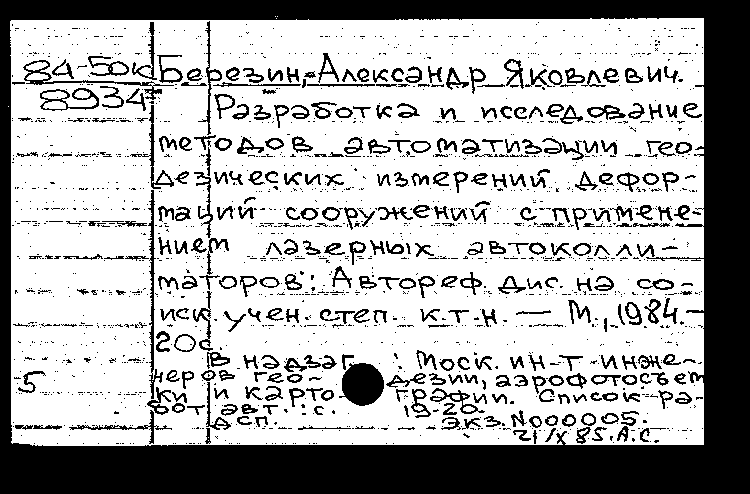 84-50к Березин, Александр Яковлевич.
8934
Разработка и исследование
методов автоматизации гео-
дезических измерений дефор-
маций сооружений с примене-
нием лазерных автоколли-
маторов: Автореф. дис. на со-
иск. учен. степ. к.т.н. — М., 1984.—
20с.
В надзаг.: Моск. ин-т инже-
неров геодезии, аэрофотосъем
5
ки и картографии. Список ра-
бот авт.: с. 19-20.
ДСП. Экз. N000005.
21/X 85. А.С.